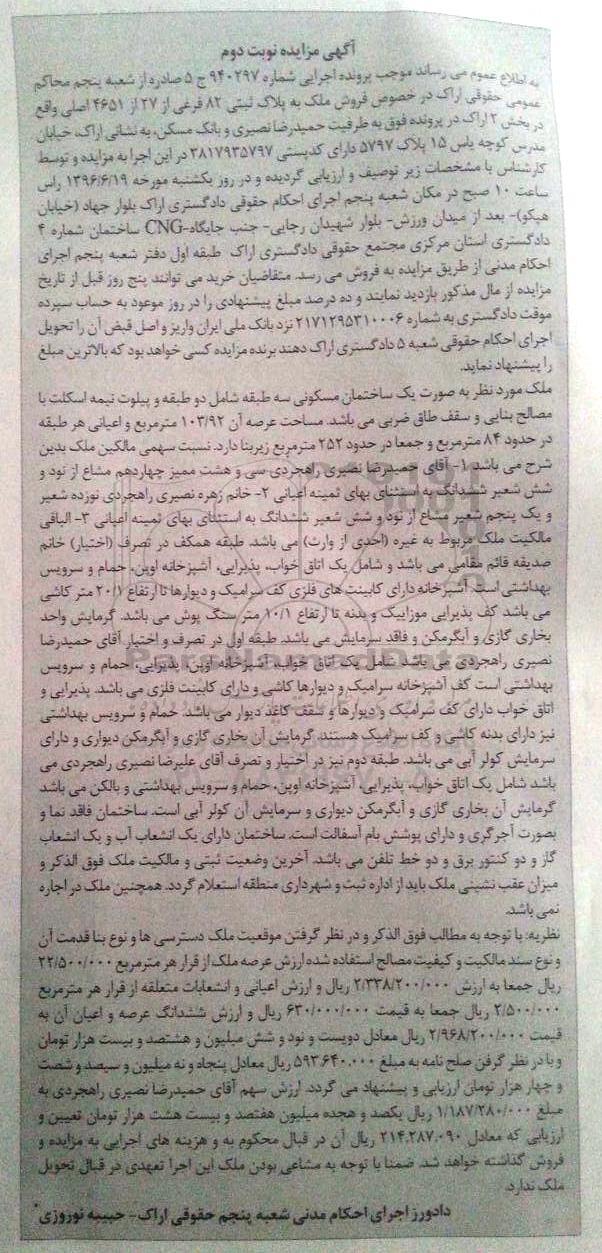 آگهی مزایده نوبت دوم
به اطلاع عموم می رساند موجب پرونده اجرایی شماره ۹۴۰۲۹۷ ج ۵ صادره از شعبه پنجم محاکم
عمومی حقوقی اراک در خصوص فروش ملک به پلاک ثبتی ۸۲ فرعی از ۲۷ از ۴۶۵۱ اصلی واقع
در بخش ۲ اراک در پرونده فوق به طرفیت حمیدرضا نصیری و بانک مسکن، به نشانی اراک، خیابان
مدرس کوچه یاس ۱۵ پلاک ۵۷۹۷ دارای کدپستی ۳۸۱۷۹۳۵۷۹۷ در این اجرا به مزایده و توسط
کارشناس با مشخصات زیر توصیف و ارزیابی گردیده و در روز یکشنبه مورخه ۱۳۹۶/۶/۱۹ راس
ساعت ۱۰ صبح در مکان شعبه پنجم اجرای احکام حقوقی دادگستری اراک بلوار جهاد (خیابان
هپکو)- بعد از میدان ورزش- بلوار شهیدان رجایی- جنب جایگاه CNG- ساختمان شماره ۴
دادگستری استان مرکزی مجتمع حقوقی دادگستری اراک طبقه اول دفتر شعبه پنجم اجرای
احکام مدنی از طریق مزایده به فروش می رسد. متقاضیان خرید می توانند پنج روز قبل از تاریخ
مزایده از مال مذکور بازدید نمایند و ده درصد مبلغ پیشنهادی را در روز موعود به حساب سپرده
موقت دادگستری به شماره ۲۱۷۱۲۹۵۳۱۰۰۰۶ نزد بانک ملی ایران واریز و اصل قبض آن را تحویل
اجرای احکام حقوقی شعبه ۵ دادگستری اراک دهند برنده مزایده کسی خواهد بود که بالاترین مبلغ
را پیشنهاد نماید.
ملک مورد نظر به صورت یک ساختمان مسکونی سه طبقه شامل دو طبقه و پیلوت نیمه اسکلت با
مصالح بنایی و سقف طاق ضربی می باشد. مساحت عرصه آن ۱۰۳/۹۲ مترمربع و اعیانی هر طبقه
در حدود ۸۴ مترمربع و جمعا در حدود ۲۵۲ مترمربع زیربنا دارد. نسبت سهمی مالکین ملک بدین
شرح می باشد ۱- آقای حمیدرضا نصیری راهجردی سی و هشت ممیز چهاردهم مشاع از نود و
شش شعیر ششدانگ به استثنای بهای ثمینه اعیانی ۲- خانم زهره نصیری راهجردی نوزده شعیر
و یک پنجم شعیر مشاع از نود و شش شعیر ششدانگ به استثنای بهای ثمینه اعیانی ۳- الباقی
مالکیت ملک مربوط به غیره (احدی از وراث) می باشد. طبقه همکف در تصرف (اختیار) خانم
صدیقه قائم مقامی می باشد و شامل یک اتاق خواب، پذیرایی، آشپزخانه اوپن، حمام و سرویس
بهداشتی است. آشپزخانه دارای کابینت های فلزی کف سرامیک و دیوارها تا ارتفاع ۲۰/۱ متر کاشی
می باشد کف پذیرایی موزاییک و بدنه تا ارتفاع ۱۰/۱ متر سنگ پوش می باشد. گرمایش واحد
بخاری گازی و آبگرمکن و فاقد سرمایش می باشد. طبقه اول در تصرف و اختیار آقای حمیدرضا
نصیری راهجردی می باشد شامل یک اتاق خواب، آشپزخانه اوپن، پذیرایی، حمام و سرویس
بهداشتی است کف آشپزخانه سرامیک و دیوارها کاشی و دارای کابینت فلزی می باشد. پذیرایی و
اتاق خواب دارای کف سرامیک و دیوارها و سقف کاغذ دیوار می باشد. حمام و سرویس بهداشتی
نیز دارای بدنه کاشی و کف سرامیک هستند. گرمایش آن بخاری گازی و آبگرمکن دیواری و دارای
سرمایش کولر آبی می باشد. طبقه دوم نیز در اختیار و تصرف آقای علیرضا نصیری راهجردی می
باشد شامل یک اتاق خواب، پذیرایی، آشپزخانه اوپن، حمام و سرویس بهداشتی و بالکن می باشد
گرمایش آن بخاری گازی و آبگرمکن دیواری و سرمایش آن کولر آبی است. ساختمان فاقد نما و
بصورت آجر گری و دارای پوشش بام آسفالت است. ساختمان دارای یک انشعاب آب و یک انشعاب
گاز و دو کنتور برق و دو خط تلفن می باشد. آخرین وضعیت ثبتی و مالکیت ملک فوق الذکر و
میزان عقب نشینی ملک باید از اداره ثبت و شهرداری منطقه استعلام گردد. همچنین ملک در اجاره
نمی باشد.
نظریه: با توجه به مطالب فوق الذکر و در نظر گرفتن موقعیت ملک دسترسی ها و نوع بنا قدمت آن
و نوع سند مالکیت و کیفیت مصالح استفاده شده ارزش عرصه ملک از قرار هر مترمربع ۲۲/۵۰۰/۰۰۰
ریال جمعا به ارزش ۲/۳۳۸/۲۰۰/۰۰۰ ریال و ارزش اعیانی و انشعابات متعلقه از قرار هر مترمربع
۲/۵۰۰/۰۰۰ ریال جمعا به قیمت ۶۳۰/۰۰۰/۰۰۰ ریال و ارزش ششدانگ عرصه و اعیان آن به
قیمت ۲/۹۶۸/۲۰۰/۰۰۰ ریال معادل دویست و نود و شش میلیون و هشتصد و بیست هزار تومان
و با در نظر گرفن صلح نامه به مبلغ ۵۹۳.۶۴۰.۰۰۰ ریال معادل پنجاه و نه میلیون و سیصد و شصت
و چهار هزار تومان ارزیابی و پیشنهاد می گردد. ارزش سهم آقای حمیدرضا نصیری راهجردی به
مبلغ ۱/۱۸۷/۲۸۰/۰۰۰ ریال یکصد و هجده میلیون هفتصد و بیست هشت هزار تومان تعیین و
ارزیابی که معادل ۲۱۴.۲۸۷.۰۹۰ ریال آن در قبال محکوم به و هزینه های اجرایی به مزایده و
فروش گذاشته خواهد شد. ضمنا با توجه به مشاعی بودن ملک این اجرا تعهدی در قبال تحویل
ملک ندارد.
دادورز اجرای احکام مدنی شعبه پنجم حقوقی اراک- حبیبه نوروزی